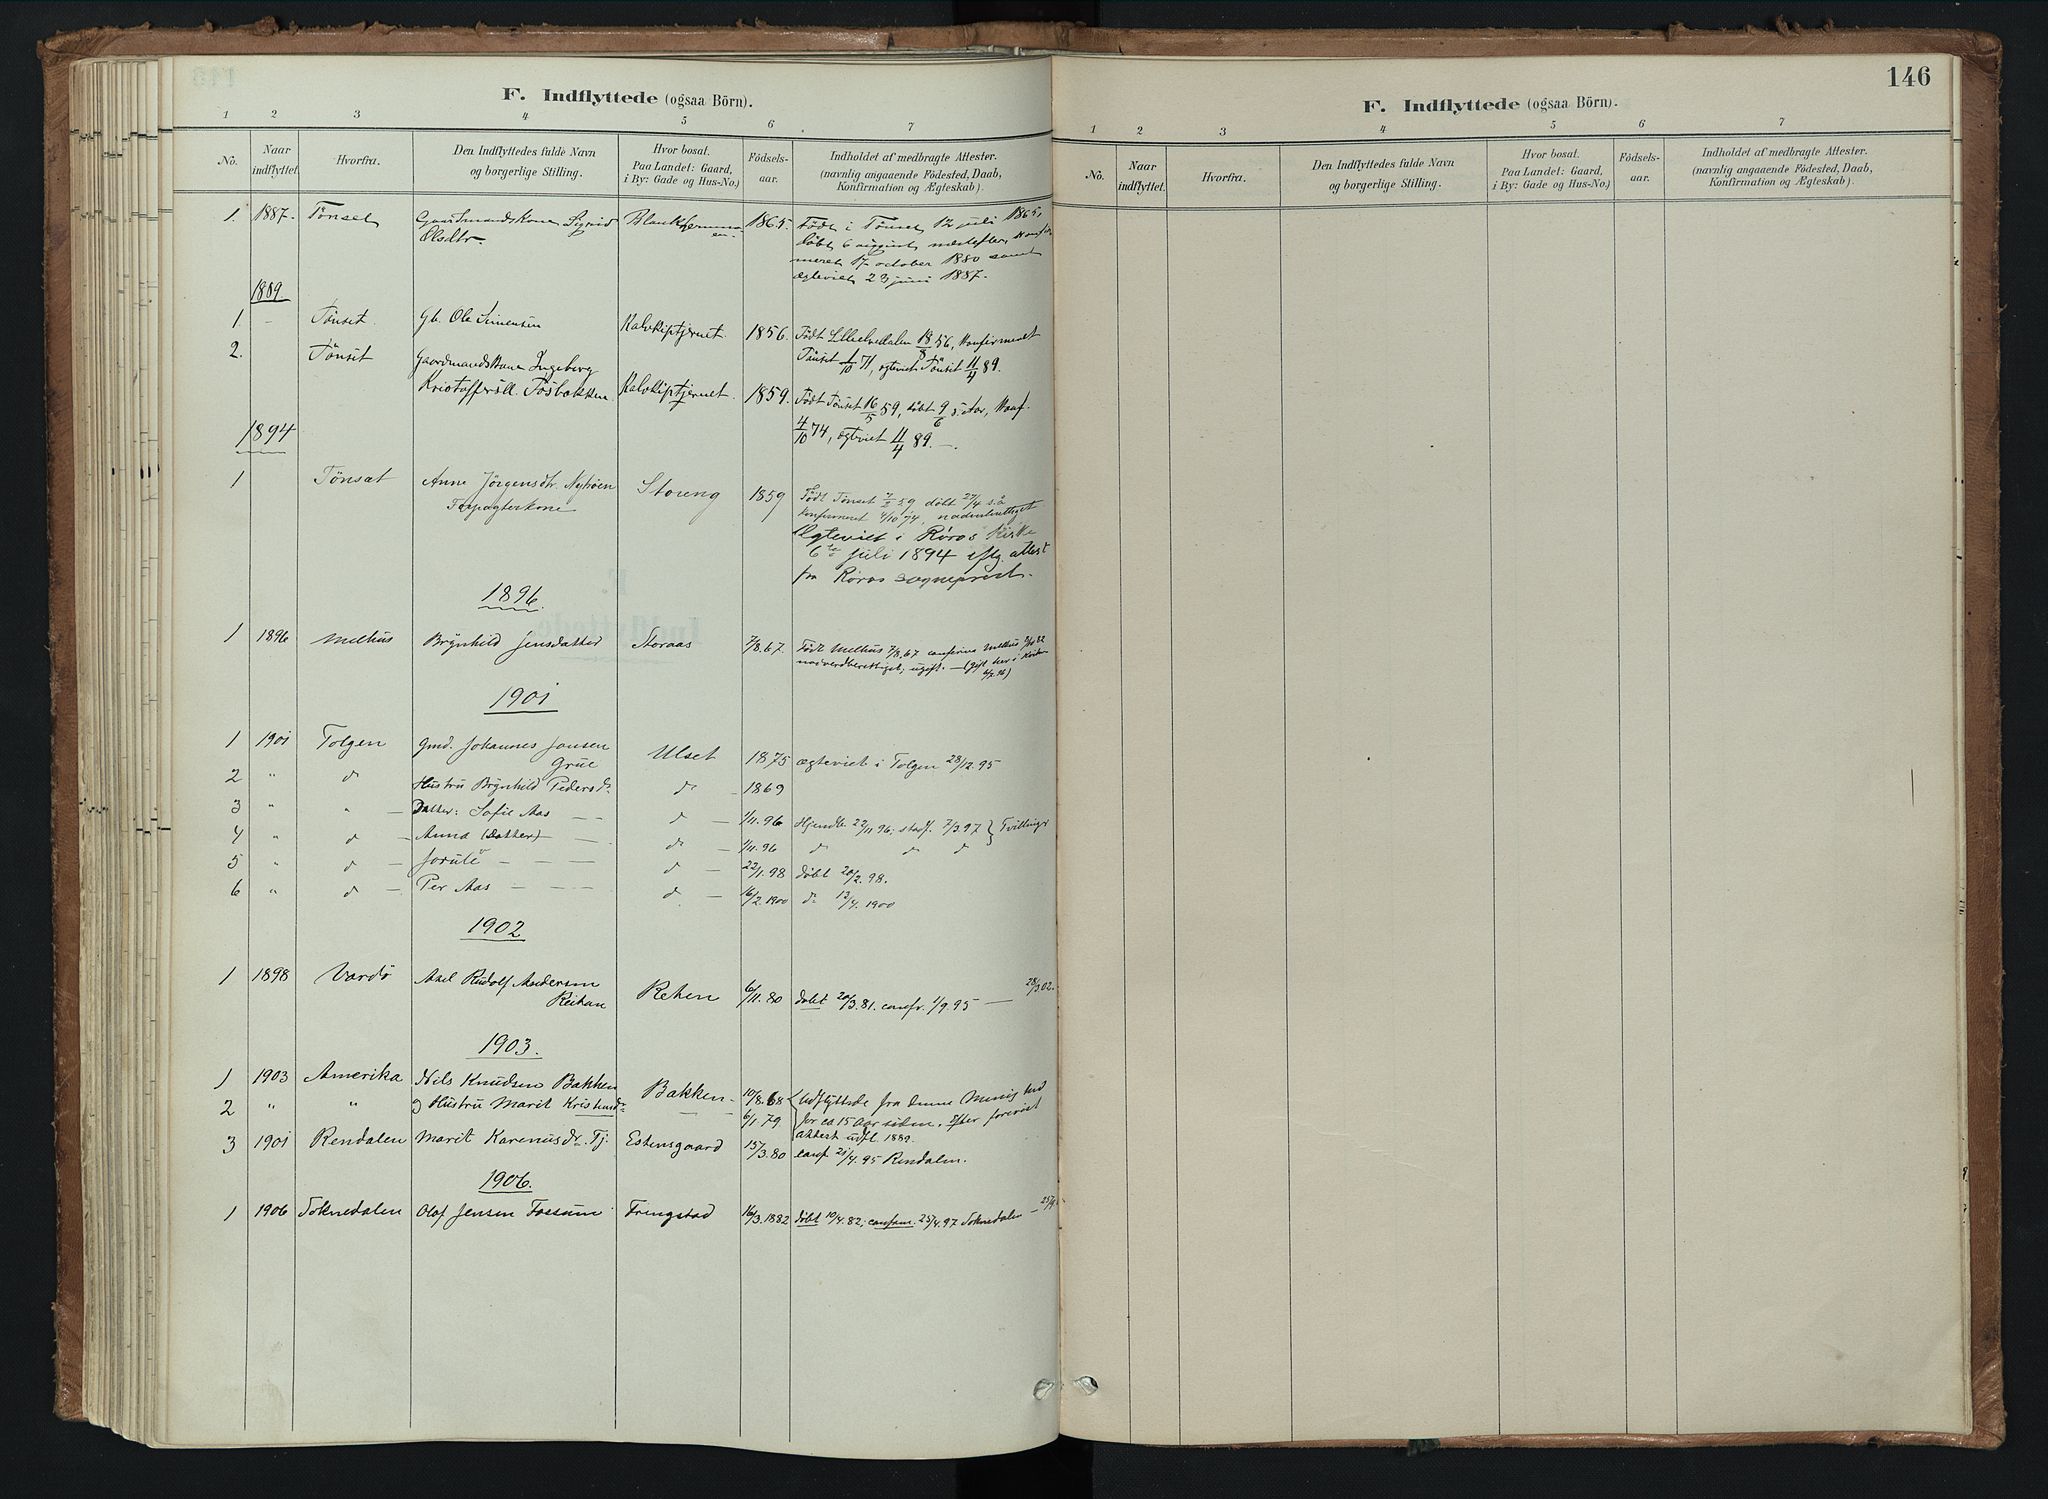 F. Indflyttede (ogsaa Börn).
1 2 3 4 5 6 7
No. Naar indflyttet. Hvorfra. Den Indflyttedes fulde Navn og borgerlige Stilling. Hvor bosat. Paa Landet: Gaard, i By: Gade og Hus-No.) Födsels-aar. Indholdet af medbragte Attester. (navnlig angaaende Födested, Daab, Konfirmation og Ægteskab).
1. 1887. Tönset Gaardmandskone Sigrid 1865. Født i Tönset 12 juli 1865,
Olsdtr. døbt 6 august næstefter, konfir
meret 17 october 1880 samt
ægteviet 23 juni 1887.
1889.
1. - Tönset. Gb. Ole Simensen Kalvkiptjernet 1856. Født Lilleelvedalen 18/8 56, Konfirmeret
Tönset 1/10 71, ægteviet Tönset 11/4 89.
2. Tönset Gaardmandskone Ingeborg
Kristoffersdt. Tosbakken Kalvkiptjernet. 1859. Født Tönset 16/5 59, døbt 9/6 s. Aar, Konf.
4/10 74, ægteviet 11/4 89. —.
1894
1 Tönset Anne Jörgensdtr. Nyhöen Storeng 1859 Født Tönset 7/2 59 døbt 27/4 s.å
Forpagterkone konfirmeret 4/10 74,
Ægteviet i Røros Kirke
6te Juli 1894 eftg. attest
fra Røros sogneprest.
1896.
1 1896 Melhus Brynhild Jensdatter Storaas 7/8.67. Født Melhus 7/8.67 confirm. Melhus
nadverdberettiget, ugift. — (gift her i Kirken
1901
1 1901 Tolgen Gmd. Johannes Jonsen Ulset 1875 ægteviet i Tolgen 28/12.95
Grue
2 " d Hustru Brynhild Pedersd. d — 1869
3 " " — Datter: Sofie Aas — — d — 1/11.96 Hjemdbt 22/11 96; stadf. 7/3.97 } Tvillinger
4 " d — Anna (Datter) — — d — 1/11.96 d d d
5 " d — — — — d — 22/1.98 døbt 20/2.98.
6 " d — Per Aas — — — d. — 16/2.1900 do 13/4.1900
1902
1 1898 Vardö Axel Rudolf Andersen Reken 6/11.80 døbt 20/3.81. confr. 1/9.95 — 28/3 02.
Reitan
1903.
1 1903 Amerika Nils Knudsen Bakken Bakken — 10/8.68 Udflyttede fra denne Menighed
2 " " og Hustru Marit — — 6/1.79 for ca 15 Aar siden, efter forevist
attest udfl. 1889.
3 1901 Rendalen Marit Karenusdr. Tj. Estensgaard 15/3.80 conf 21/4.95 Rendalen.
1906.
1 1906 Soknedalen Olof Jensen Fossum Fringstad 16/3.1882 døbt 10/4.82; confirm. 25/4.97 Soknedalen — 25/9
146
F. Indflyttede (ogsaa Börn).
1 2 3 4 5 6 7
No. Naar indflyttet. Hvorfra. Den Indflyttedes fulde Navn og borgerlige Stilling. Hvor bosat. Paa Landet: Gaard, i By: Gade og Hus-No.) Födsels-aar. Indholdet af medbragte Attester. (navnlig angaaende Födested, Daab, Konfirmation og Ægteskab).